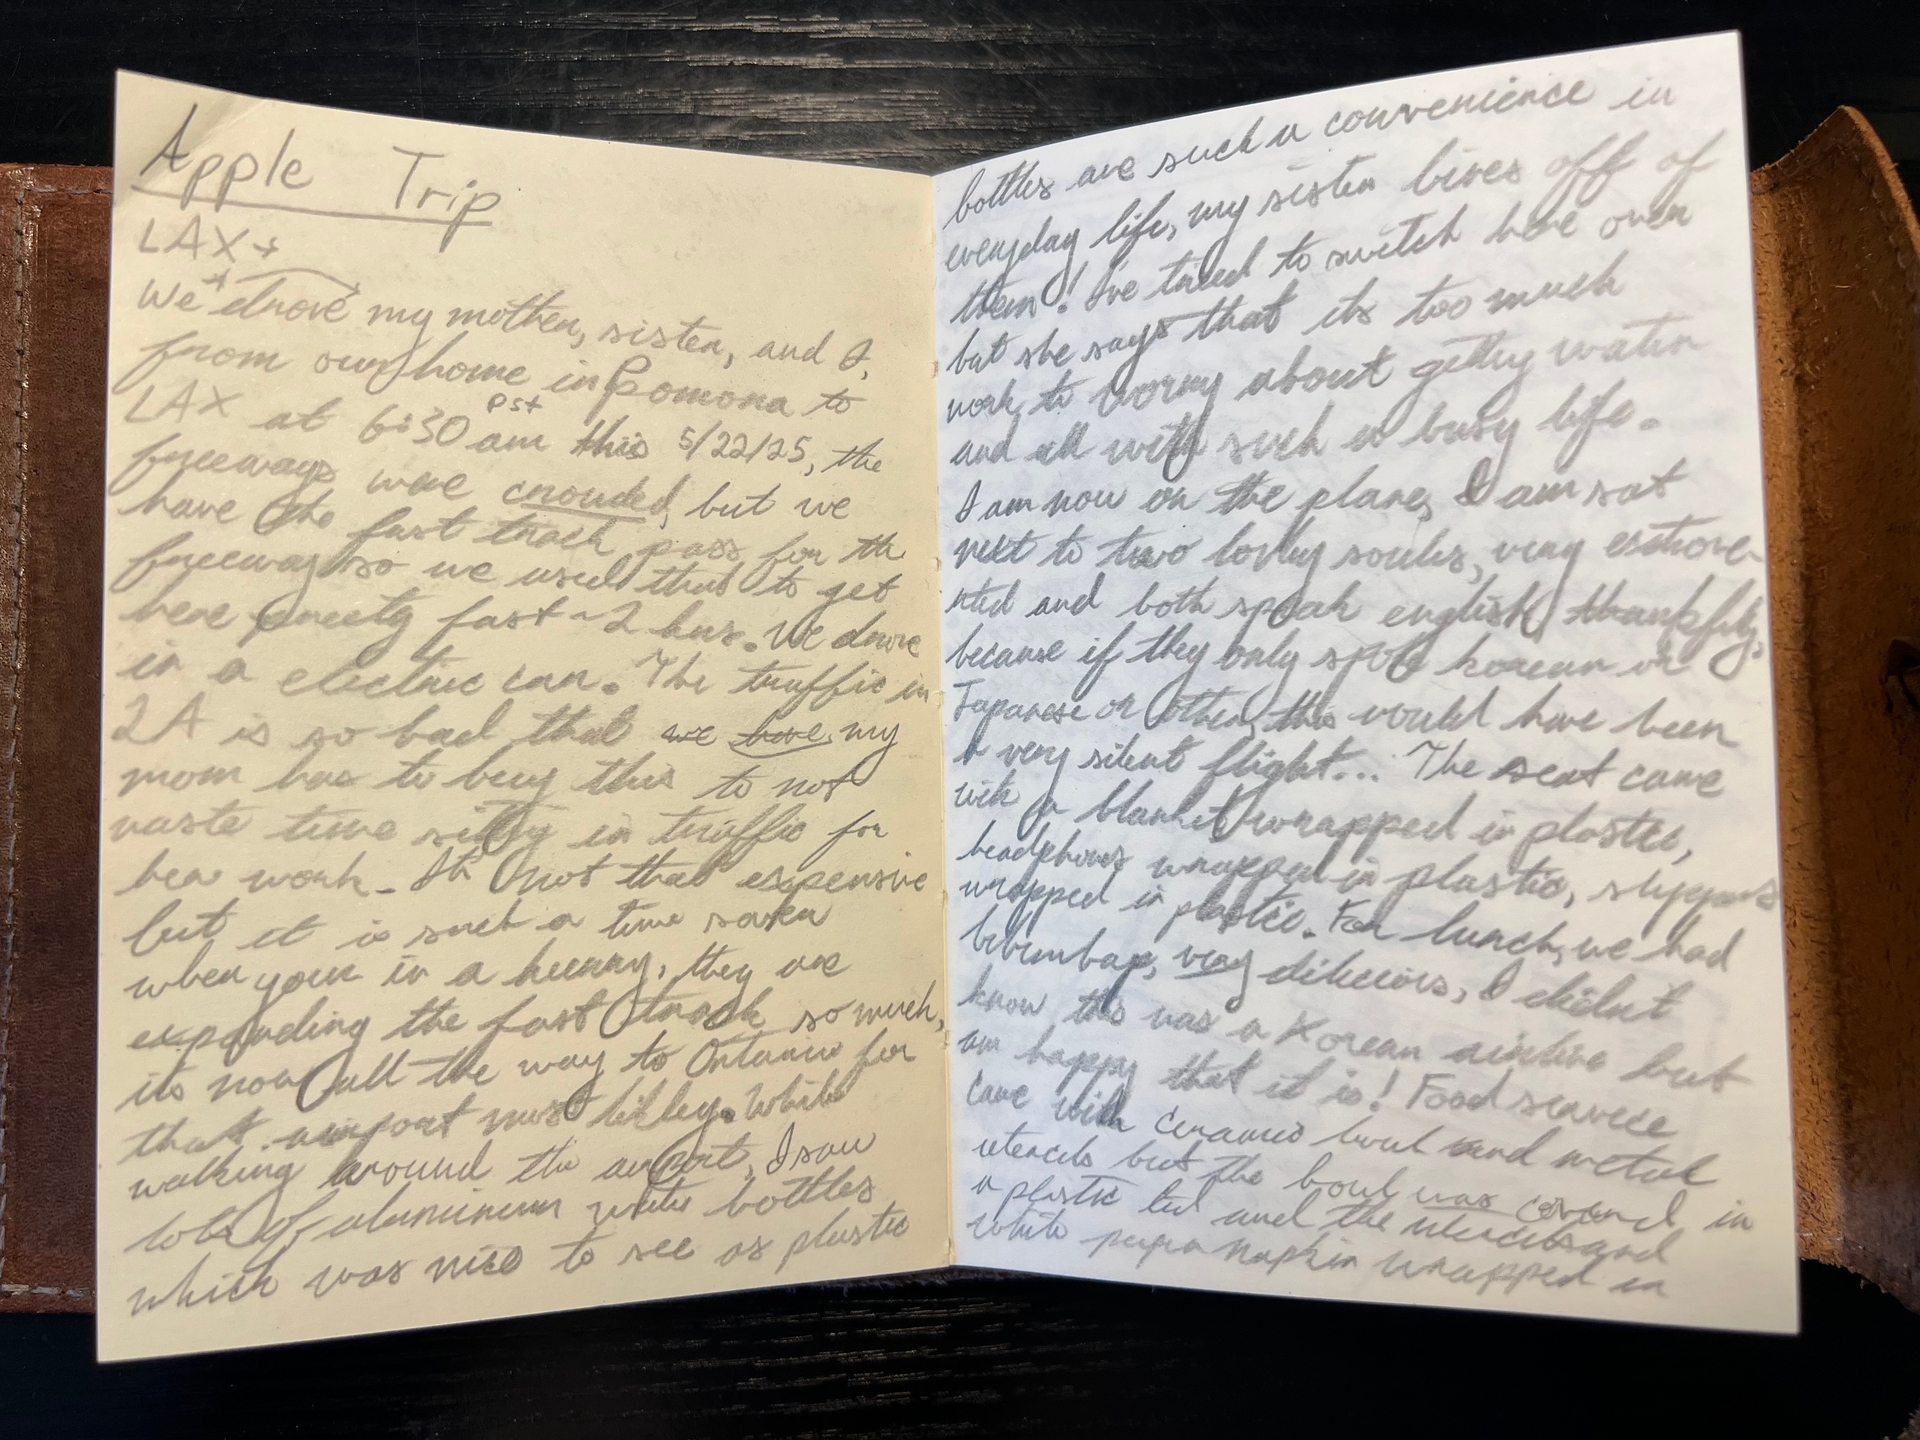 Apple Trip
LAX
We drove my mother, sister, and I,
from our home in Pomona to
LAX at 6:30 am pst this 5/22/25, the
freeways were crouded, but we
have the fast track pass for the
freeway so we used that to get
here preety fast ~2 hrs. We drove
in a electric car. The traffic in
LA is so bad that we have my
mom has to buy this to not
waste time sitting in traffic for
her work. It's not that expensive
but it is such a time saver
when your in a hurry, they are
expanding the fast track so much,
its now all the way to Ontario for
that airport most likley. While
walking around the airport, I saw
lots of aluminum water bottles
which was nice to see as plastic
bottles are such a convenience in
everyday life, my sister lives off of
them! I've tried to switch her over
but she says that its too much
work to worry about getting water
and all with such a busy life.
I am now on the plane, I am sat
next to two lovley souls, very extrove
rted and both speak english thankfully,
because if they only spoke korean or
Japanese or other, this would have been
a very silent flight... The seat came
with a blanket wrapped in plastic,
headphones wrapped in plastic, slippers
wrapped in plastic. For lunch, we had
bibimbap, very dilicious, I didn't
know this was a Korean airline but
am happy that it is! Food service
came with ceramic bowl and metal
utencils but the bowl was covered in
a plastic lid and the utencils and
white paper napkin wrapped in